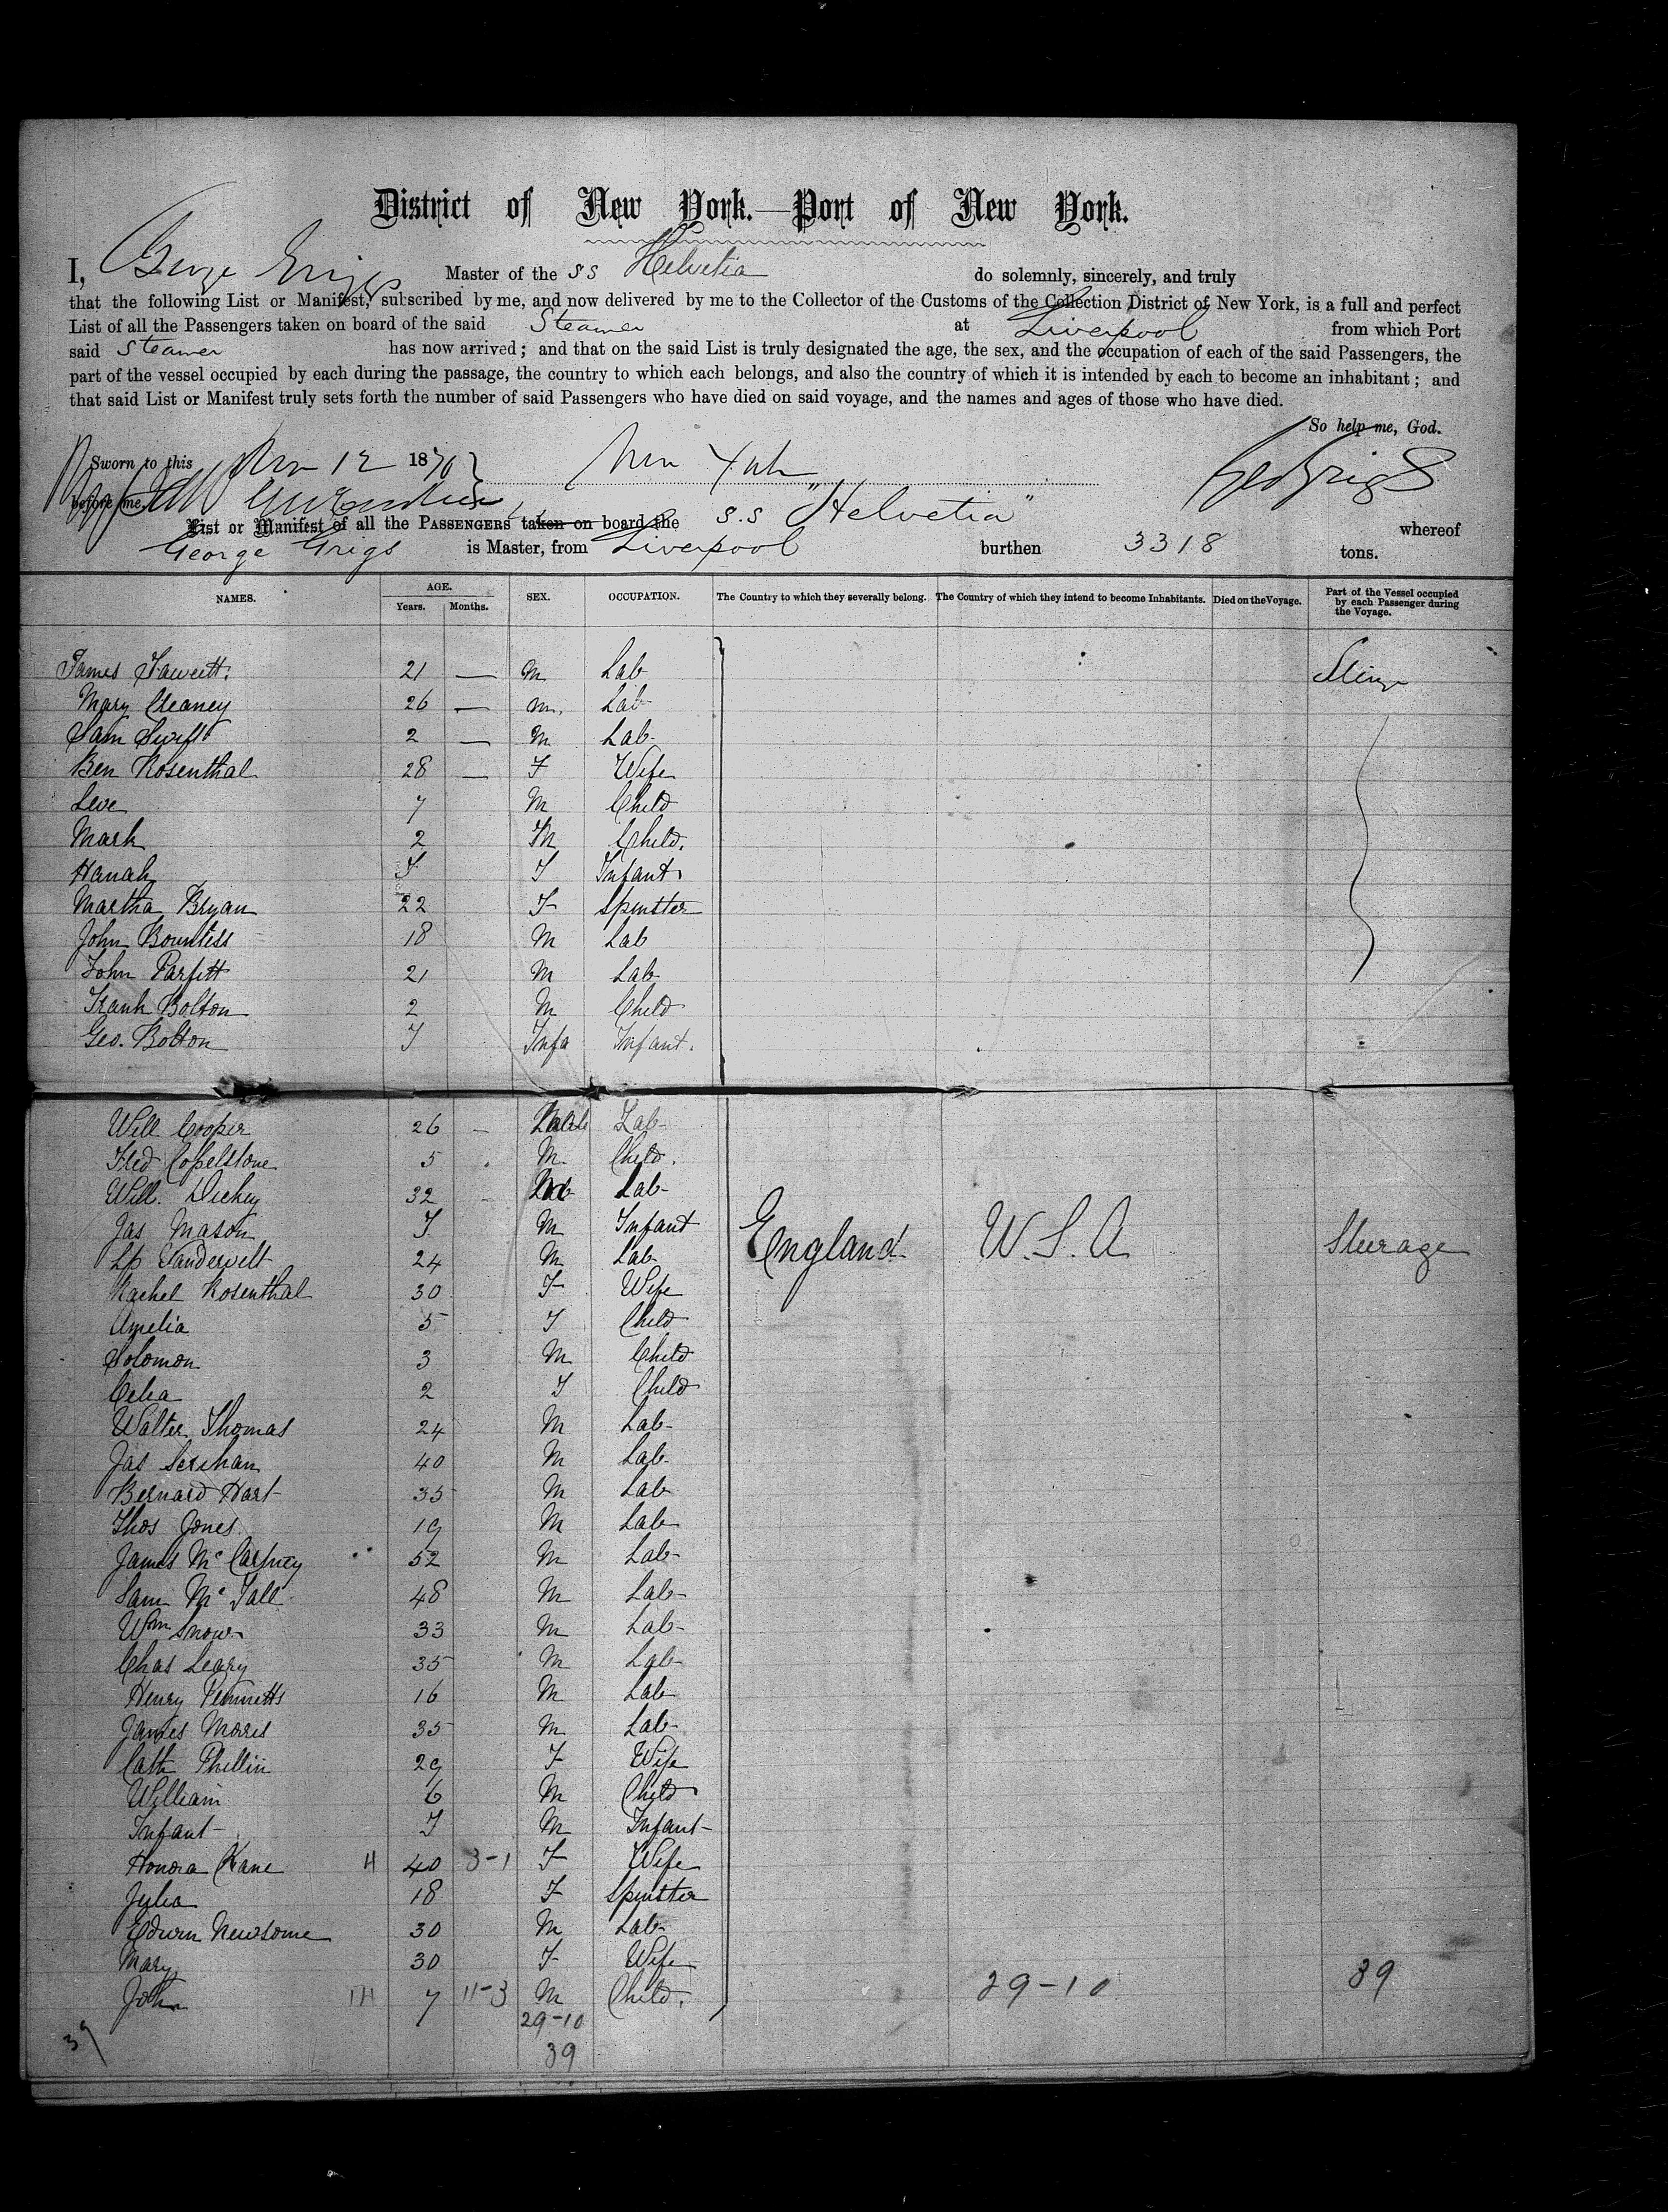 District of New York.—Port of New York.
I, George Grigs Master of the SS Helvetia do solemnly, sincerely, and truly
that the following List or Manifest, subscribed by me, and now delivered by me to the Collector of the Customs of the Collection District of New York, is a full and perfect
List of all the Passengers taken on board of the said Steamer at Liverpool from which Port
said Steamer has now arrived; and that on the said List is truly designated the age, the sex, and the occupation of each of the said Passengers, the
part of the vessel occupied by each during the passage, the country to which each belongs, and also the country of which it is intended by each to become an inhabitant; and
that said List or Manifest truly sets forth the number of said Passengers who have died on said voyage, and the names and ages of those who have died.
So help me, God.
Sworn to this Nov 12 1870 New York Geo Grigs
before me,
List or Manifest of all the PASSENGERS taken on board the S.S "Helvetia" whereof
George Grigs is Master, from Liverpool burthen 3318 tons.
NAMES. AGE. Years. Months. SEX. OCCUPATION. The Country to which they severally belong. The Country of which they intend to become Inhabitants. Died on the Voyage. Part of the Vessel occupied by each Passenger during the Voyage.
James Fawcett 21 — M Lab
Mary Creaney 26 — m. Lab
Sam Swift 2 — M Lab
Ben Rosenthal 28 — F Wife
Leve 7 M Child
Mark 2 M Child.
Hanah I F Infant
Martha Bryan 22 F Spinster
John Bountiss 18 M Lab
John Parfitt 21 M Lab
Frank Bolton 2 M Child
Geo. Bolton I Infa Infant.
Will Cooper 26 — Lab
Fred Copelstone 5 M. Child.
Will. Dickey 32 - Lab-
Jas Mason I M Infant England U.S.A Steerage
Vandervelt 24 M Lab
Rachel Rosenthal 30 F Wife
Amelia 5 F Child
Solomon 3 M Child
Celia 2 F Child
Walter Thomas 24 M Lab-
Jas 40 M Lab-
Bernard Hart 35 M Lab
Thos Jones 19 M Lab
James 52 M Lab-
Sam McFall 48 M Lab-
Wm Snow 33 M Lab-
Chas Leary 35 M Lab-
Henry 16 M Lab
James Morris 35 M Lab-
Cath 29 F Wife
William 6 M Child
Infant I M Infant-
Honora Kane H 40 3-1 F Wife
Julia 18 F Spinster
Edwin Newsome 30 M Lab
Mary 30 F Wife
John 7 11-3 M Child. 29-10 39
29-10
39 39